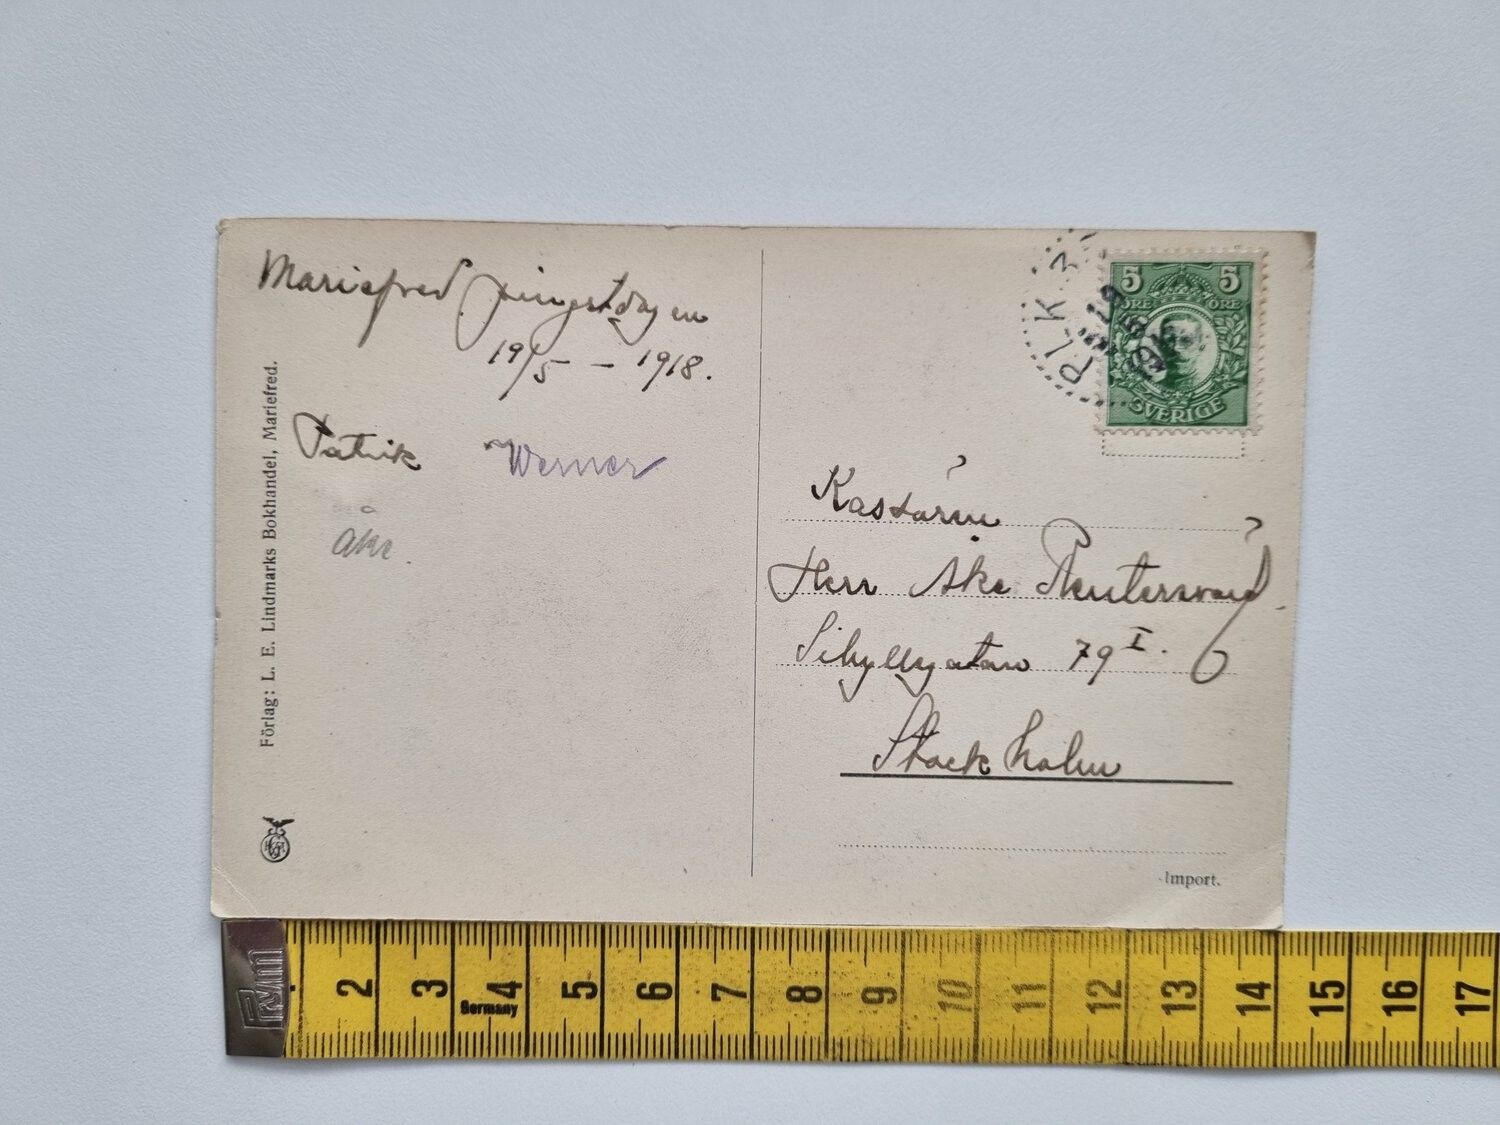 Mariefred pingstdagen
19/5 - 1918.
Patrik Werner
Åke
Förlag: L. E. Lindmarks Bokhandel, Mariefred.
PLK 3
19 5
5 5
ÖRE ÖRE
SVERIGE
Herr Åke Reutersvärd
Sibyllegatan 79 I.
Stockholm
Import.
Prym
Germany
2 3 4 5 6 7 8 9 10 11 12 13 14 15 16 17